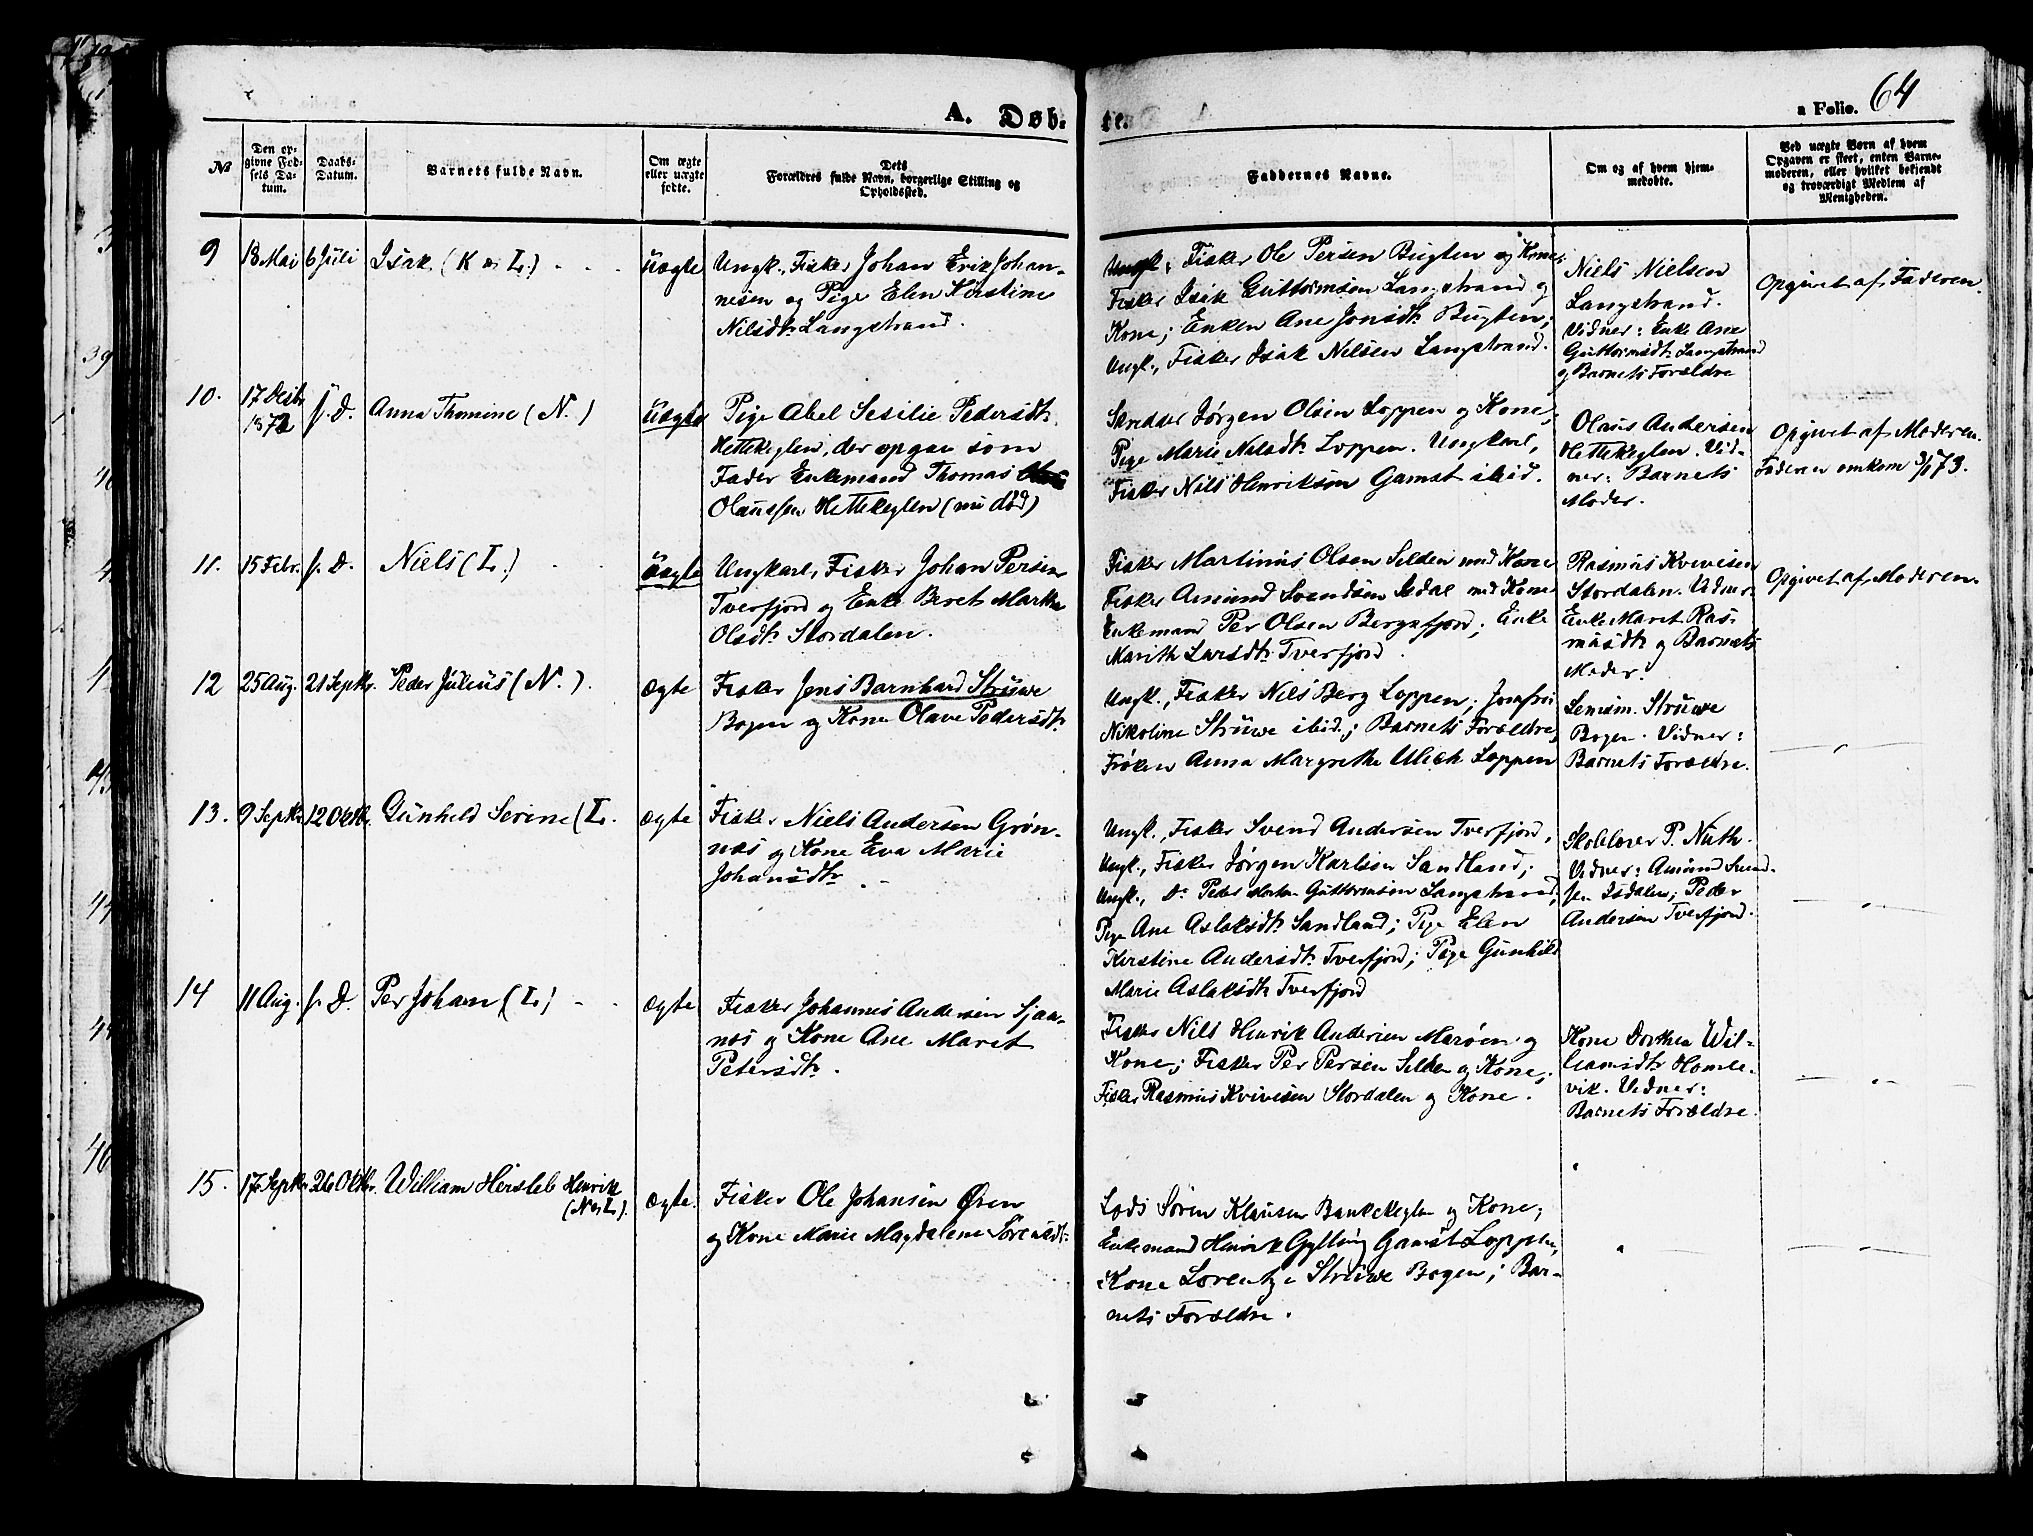 A. Døbte.
a Folio. 64
№
Den opgivne Fødsels Datum.
Daabs-Datum.
Barnets fulde Navn.
Om ægte eller uægte fødte.
Dets Forældres fulde Navn, borgerlige Stilling og Opholdssted.
Faddernes Navne.
Om og af hvem hjemmedøbte.
Ved uægte Børn af hvem Opgaven er skeet, enten Barnemoderen, eller hvilket bekjendt og troværdigt Medlem af Menigheden.
9
13 Mai
6 Juli
Isak (K og L.)
uægte
Ungk., Fisker Johan Erik Johan-
nesen og Pige Elen Kirstine
Nilsdtr Langstrand.
Ungk., Fisker Ole Persen Bugten og Kone;
Fisker Isak Guttormsen Langstrand og
Kone; Enken Ane Jonsdtr Bugten;
Ungk., Fisker Isak Nilsen Langstrand.
Niels Nielsen
Langstrand.
Vidner: Enke Ane
Guttormsdtr Langstrand
og Barnets Forældre
Opgivet af Faderen.
10.
17 Desbr
1872
s. D.
Anna Thomine (N.)
uægte
Pige Abel Sesilie Pedersdtr.
Hettekeglen, der opgav som
Fader Enkemand Thomas
Olaussen Hettekeglen (nu død)
Skredder Jørgen Olsen Loppen og Kone;
Pige Marie Nilsdtr Loppen. Ungkarl,
Fisker Nils Henriksen Gamst ibid.
Olaus Andersen
Hettekeglen. Vid-
ner: Barnets
Moder.
Opgivet af Moderen.
Faderen omkom 3/1 73.
11.
15 Febr.
s. D.
Niels (L.)
uægte
Ungkarl, Fisker Johan Persen
Tverfjord og Enke Beret Marthe
Olsdtr Stordalen.
Fisker Martinus Olsen Selden med Kone
Fisker Amund Svendsen Isdal med Kone
Enkemand Per Olsen Bergsfjord; Enke
Marith Larsdtr Tverfjord.
Rasmus Kvivesen
Stordalen. Vidner:
Enke Maret Ras-
musdtr og Barnets
Moder.
Opgivet af Moderen.
12
25 Aug.
21 Septbr.
Peder Julius (N.).
ægte
Fisker Jens Barnhard Strüwe
Bogen og Kone Olave Pedersdtr
Ungk., Fisker Nils Berg Loppen; Jomfru
Nikoline Strüwe ibid.; Barnets Forældre,
Frøken Anna Margrethe Ulich Loppen
Strüwe
Bogen. Vidner:
Barnets Forældre.
13.
9 Septbr
12 Oktbr.
Gunhild Serine (L.
ægte
Fisker Niels Andersen Grøn-
næs og Kone Eva Marie
Johansdtr.
Ungk., Fisker Svend Andersen Tverfjord,
Ungk., Fisker Jørgen Karlsen Sandland;
Ungk., Do Peder Morten Guttormsen Langstrand,
Pige Ane Aslaksdtr Sandland; Pige Elen
Kirstine Andersdtr Tverfjord; Pige Gunhild
Marie Aslaksdtr Tverfjord
Skolelærer P. Nuth.
Vidner: Amund Svend-
sen Isdalen; Peder
Andersen Tverfjord.
14
11 Aug.
s. D.
Per Johan (L.)
ægte
Fisker Johannes Andersen Sjaa-
næs og Kone Ane Maret
Petersdtr.
Fisker Nils Henrik Andersen Marøen og
Kone; Fisker Per Persen Selden og Kone;
Fisker Rasmus Kvivesen Stordalen og Kone.
Kone Dorthea Wil-
liamsdtr Homle-
vik. Vidner:
Barnets Forældre.
15.
17 Septbr
26 Oktbr.
William Hersleb Henrik
(N og L).
ægte.
Fisker Ole Johansen Øren
og Kone Marie Magdalene Sørensdtr.
Lods Søren Klausen Bankekeglen og Kone;
Enkemand Henrik Gylling Gamst Loppen,
Kone Lorentze Strüwe Bogen; Bar-
nets Forældre.